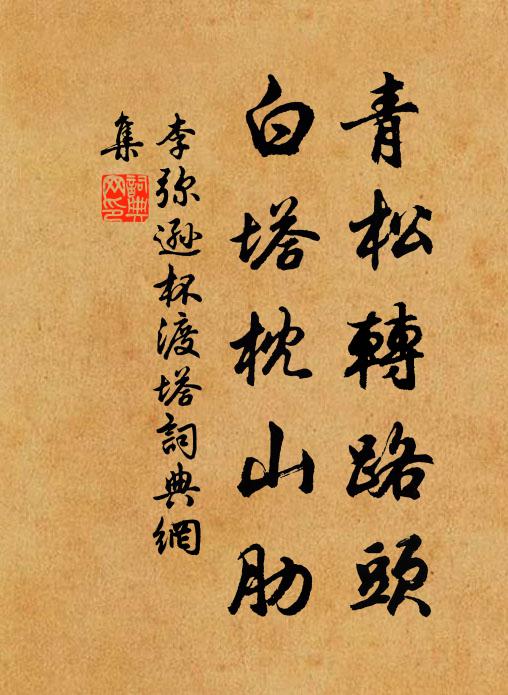 青松轉路頭
白塔枕山肋
李弥遜杯渡塔詞典網
集
詞典
网印